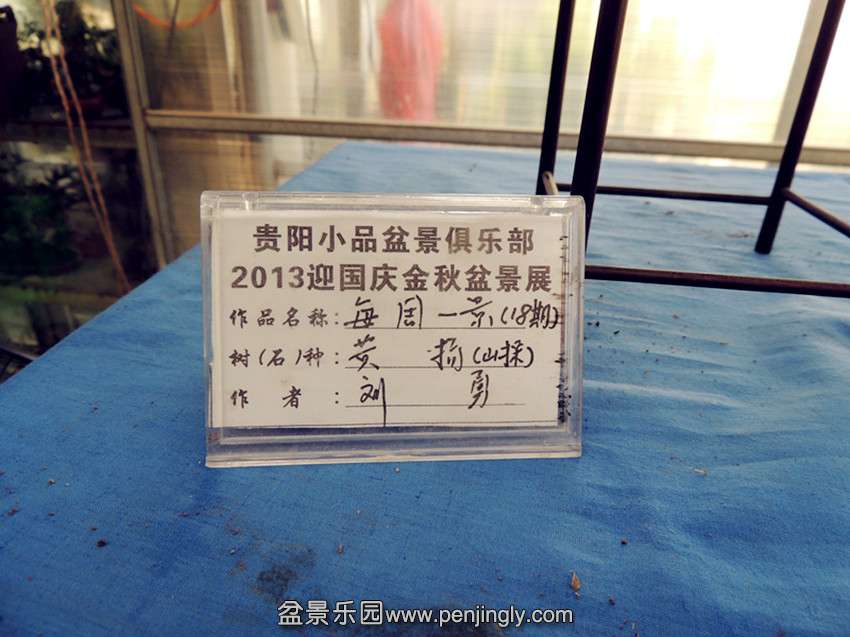 贵阳小品盆景俱乐部
2013迎国庆金秋盆景展
作品名称：每周一景(18期)
树(石)种：黄 杨(山採)
作 者：刘 勇
盆景乐园www.penjingly.com